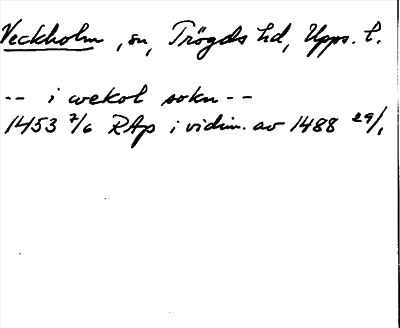 Veckholm, sn, Trögds hd, Upps. l.
-- i wekol sokn --
1453 7/6 RAp i vidim. av 1488 29/1